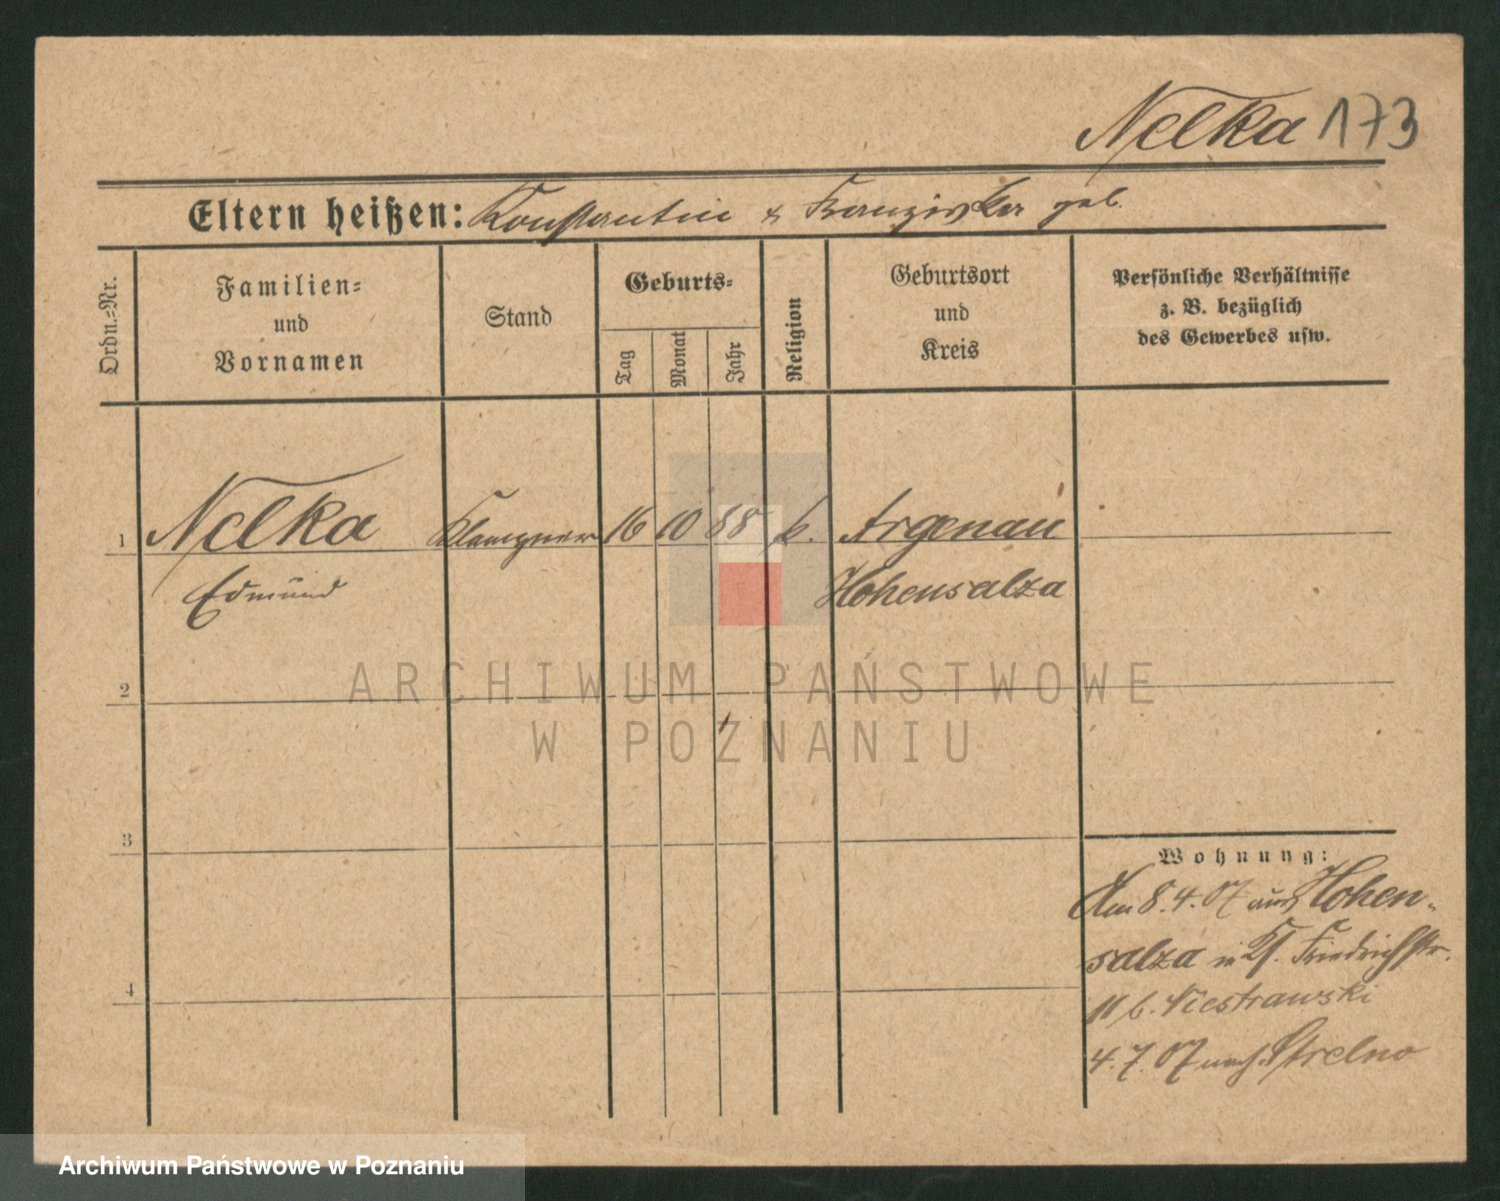 Nelka 173
Eltern heißen: Konstantin & Franziska geb.
Ordn.=Nr.
Familien=
und
Vornamen
Stand
Geburts=
Tag
Monat
Jahr
Religion
Geburtsort
und
Kreis
Persönliche Verhältnisse
z. B. bezüglich
des Gewerbes usw.
1 Nelka Klempner 16 10 88 k. Argenau
Edmund Hohensalza
2
3
4
Wohnung:
Am 8.4.07 aus Hohen-
salza in Friedrichstr.
11 b.
4.7.07 nach Strelno
ARCHIWUM PAŃSTWOWE
W POZNANIU
Archiwum Państwowe w Poznaniu